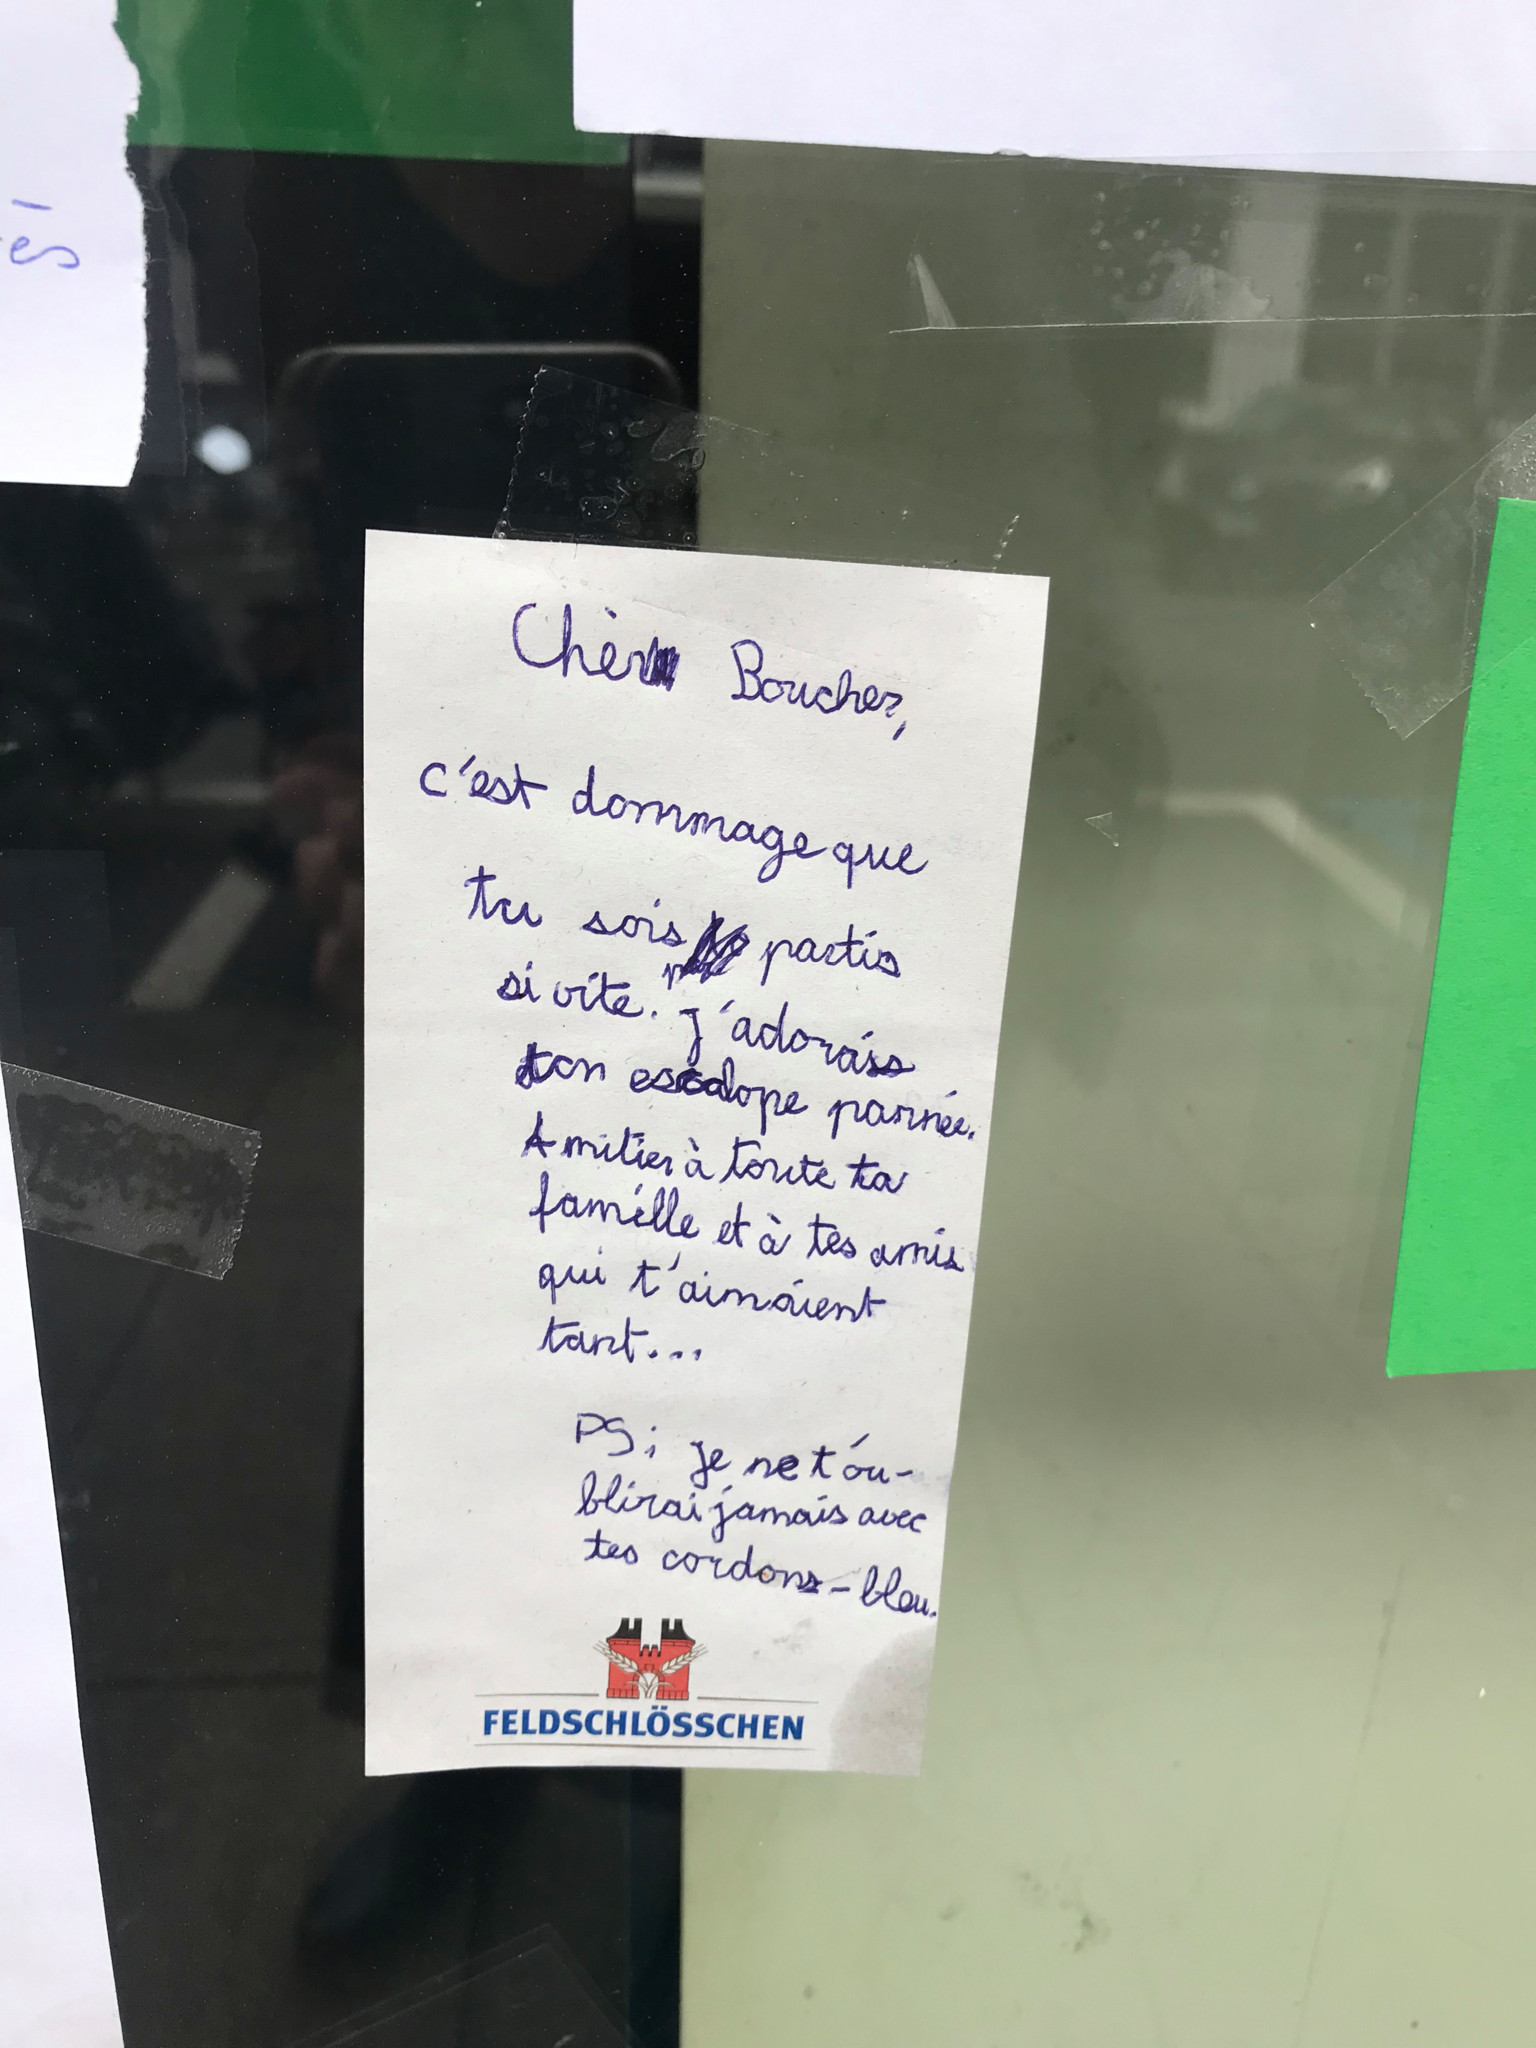 es
Chèr Boucher,
c'est dommage que
tu sois partis
si vite. J'adorais
ton escalope pannée.
Amitier à toute ta
famille et à tes amis
qui t'aimaient
tant...
PS; je ne t'ou-
blirai jamais avec
tes cordons-bleu.
FELDSCHLÖSSCHEN